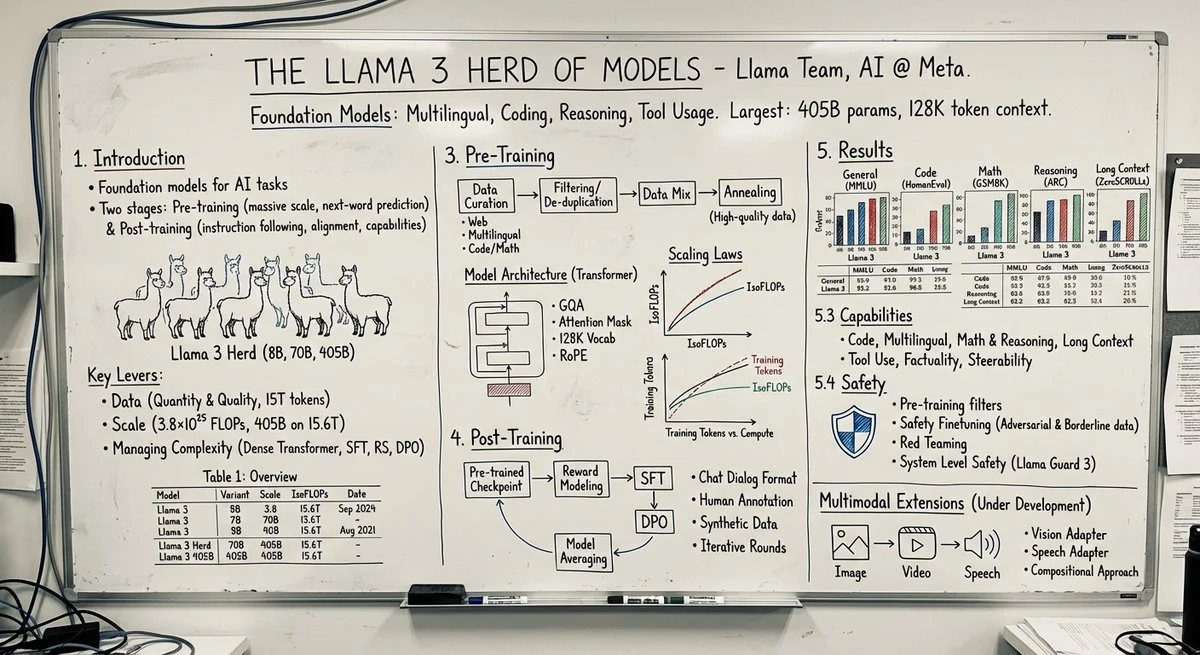 THE LLAMA 3 HERD OF MODELS – Llama Team, AI @ Meta.
Foundation Models: Multilingual, Coding, Reasoning, Tool Usage. Largest: 405B params, 128K token context.
1. Introduction
• Foundation models for AI tasks
• Two stages: Pre-training (massive scale, next-word prediction)
& Post-training (instruction following, alignment, capabilities)
Llama 3 Herd (8B, 70B, 405B)
Key Levers:
• Data (Quantity & Quality, 15T tokens)
• Scale (3.8×10²⁵ FLOPs, 405B on 15.6T)
• Managing Complexity (Dense Transformer, SFT, RS, DPO)
Table 1: Overview
Model Variant Scale IsoFLOPs Date
Llama 3 3.8 15.6T Sep 2024
Llama 3 70B –
Llama 3 15.6T Aug 2021
Llama 3 Herd 70B 405B 15.6T –
Llama 3 405B 405B 405B 15.6T –
3. Pre-Training
Data Curation
Filtering/ De-duplication
Data Mix
Annealing
(High-quality data)
• Web
• Multilingual
• Code/Math
Model Architecture (Transformer)
• GQA
• Attention Mask
• 128K Vocab
• RoPE
Scaling Laws
IsoFLOPs
IsoFLOPs
IsoFLOPs
Training Tokens
Training
Tokens
IsoFLOPs
Training Tokens vs. Compute
4. Post-Training
Pre-trained Checkpoint
Reward Modeling
SFT
DPO
Model Averaging
• Chat Dialog Format
• Human Annotation
• Synthetic Data
• Iterative Rounds
5. Results
General (MMLU)
Code (HumanEval)
Math (GSM8K)
Reasoning (ARC)
Long Context (ZeroSCROLLs)
Llama 3
Llama 3
Llama 3
Llama 3
Llama 3
MMLU Code Math
General
Llama 3
MMLU Code Math
Code
Code
Reasoning
Long Context
5.3 Capabilities
• Code, Multilingual, Math & Reasoning, Long Context
• Tool Use, Factuality, Steerability
5.4 Safety
• Pre-training filters
• Safety Finetuning (Adversarial & Borderline data)
• Red Teaming
• System Level Safety (Llama Guard 3)
Multimodal Extensions (Under Development)
Image
Video
Speech
• Vision Adapter
• Speech Adapter
• Compositional Approach